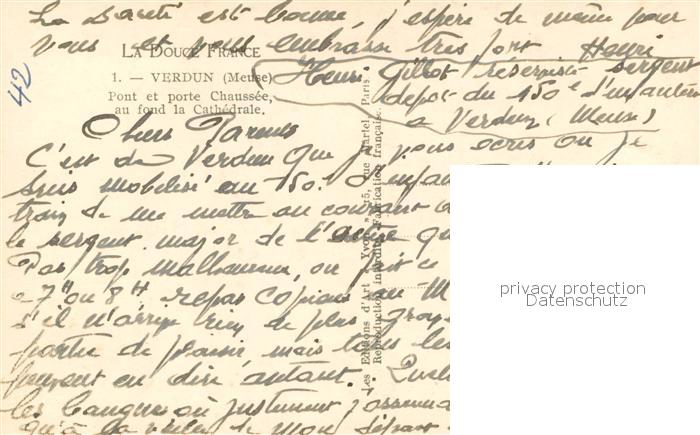 La santé est bonne, j'espère de même pour
vous et vous embrasse très fort Henri
LA DOUCE FRANCE
1. — VERDUN (Meuse)
Pont et porte Chaussée,
au fond la Cathédrale.
42
Henri Gillot réserviste sergent
depot du 150e d'infanterie
a Verdun (Meuse)
Chers Parents
C'est de Verdun que je vous ecris ou je
suis mobilisé au 150e d'infan
train de me mettre au courant
le sergent major de l'active qu
Pas trop malheureux, on fait
27H ou 8H repas copieux au M
s'il n'arrive rien de plus grave
partie de plaisir, mais tous les
peuvent en dire autant. Quel
les banques où justement j'
qu'à la veille de mon départ
Les Editions d'Art "Yvon", 15, rue Martel, Paris.
Reproduction interdite. Fabrication française.
privacy protection
Datenschutz